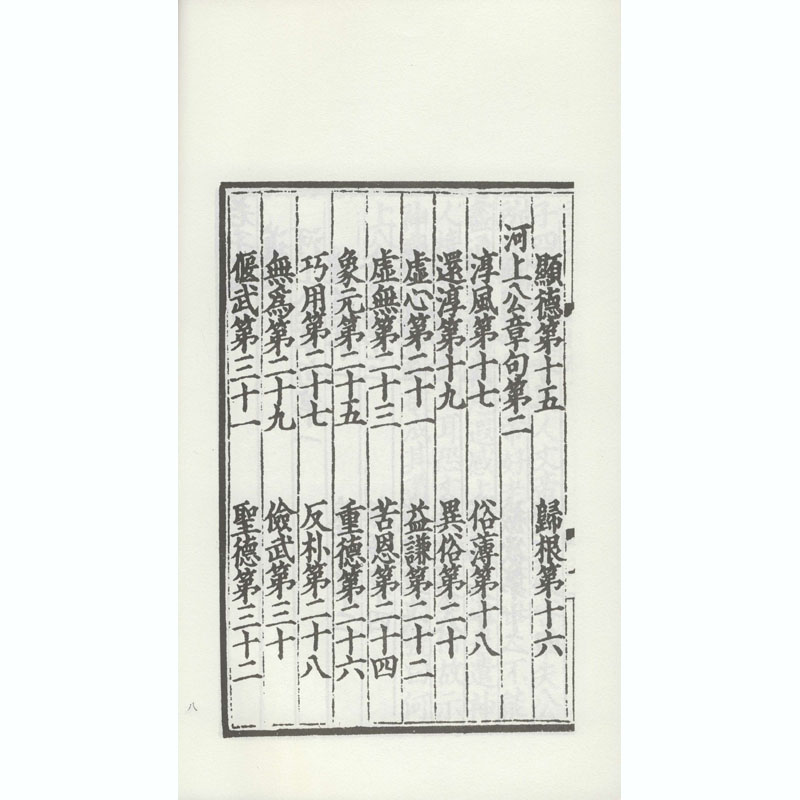 顯德第十五　歸根第十六
河上公章句第二
淳風第十七　俗薄第十八
還淳第十九　異俗第二十
虛心第二十一　益謙第二十二
虛無第二十三　苦恩第二十四
象元第二十五　重德第二十六
巧用第二十七　反朴第二十八
無爲第二十九　儉武第三十
偃武第三十一　聖德第三十二
八